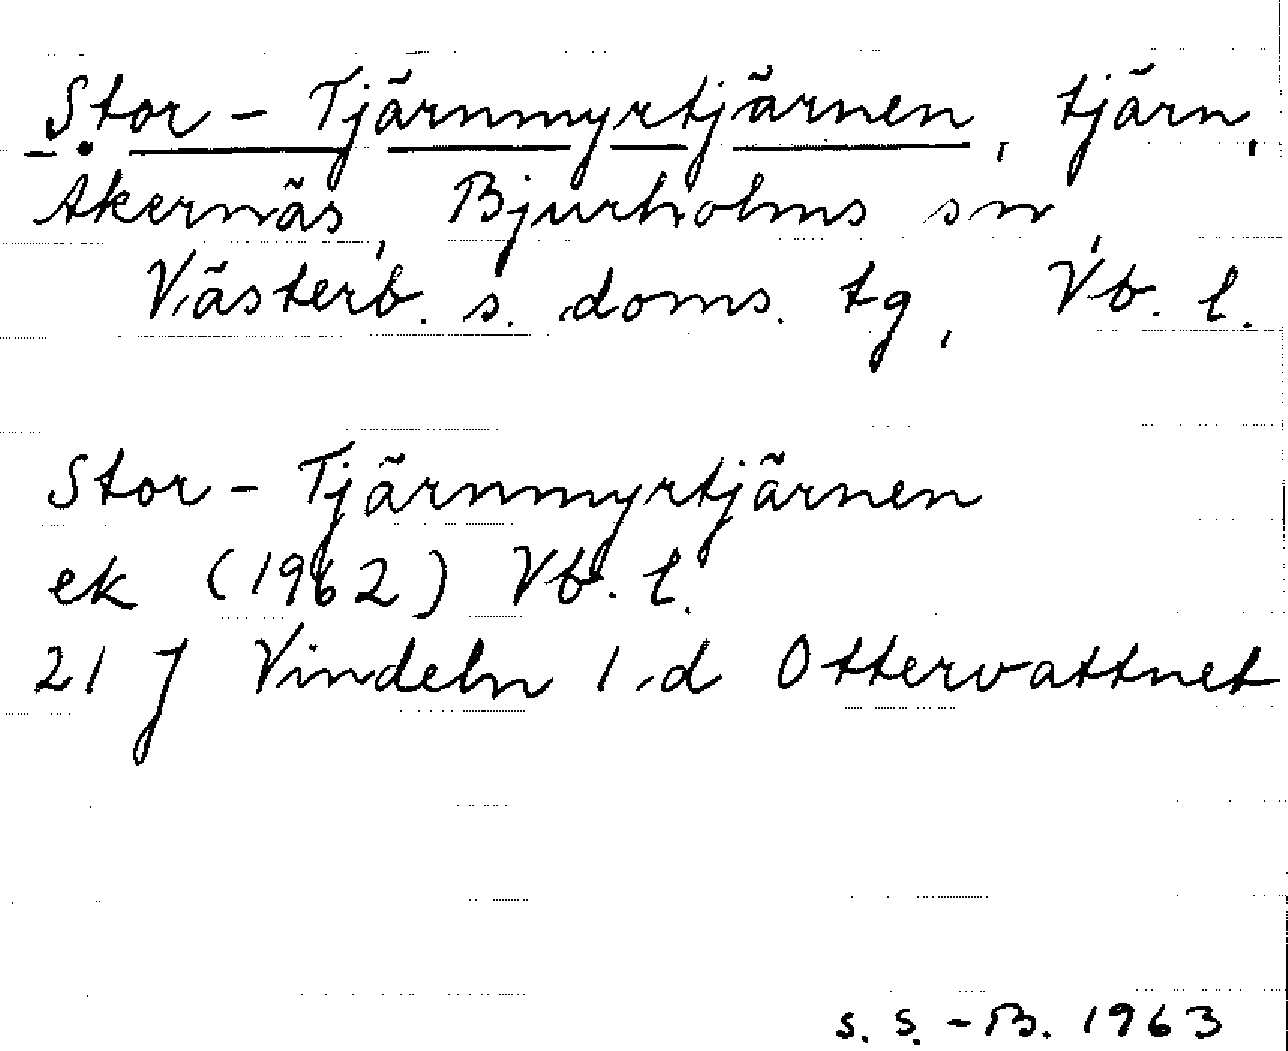 Stor-Tjärnmyrtjärnen, tjärn,
Åkernäs, Bjurholms sn,
Västerb. s. doms. tg, Vb. l.
Stor-Tjärnmyrtjärnen
ek (1962) Vb. l.
21 J Vindeln 1 d Ottervattnet
S. S.-B. 1963